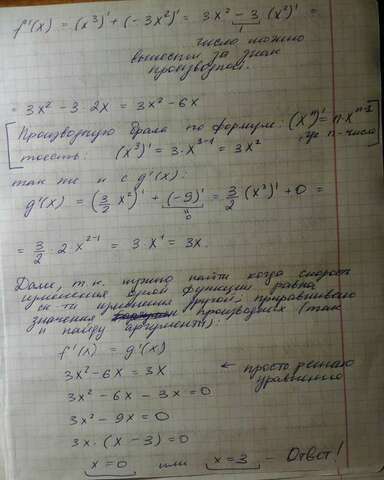 f'(x) = (x³)' + (-3x²)' = 3x² - 3 (x²)' =
число можно
выносить за знак
производной.
= 3x² - 3 · 2x = 3x² - 6x
Производную брала по формуле: (xⁿ)' = n · xⁿ⁻¹
где n - число
тоесть: (x³)' = 3 · x³⁻¹ = 3x²
так же и с g'(x):
g'(x) = (3/2 x²)' + (-9)' = 3/2 (x²)' + 0 =
0
= 3/2 · 2 · x²⁻¹ = 3 · x¹ = 3x.
Дали, т.к. нужно найти когда скорость
изменения одной функции равна
ск-ти изменения другой, приравниваю
значения производных (так
и найду аргументы):
f'(x) = g'(x)
3x² - 6x = 3x ← просто решаю
уравнение
3x² - 6x - 3x = 0
3x² - 9x = 0
3x · (x - 3) = 0
x = 0 или x = 3 - Ответ!